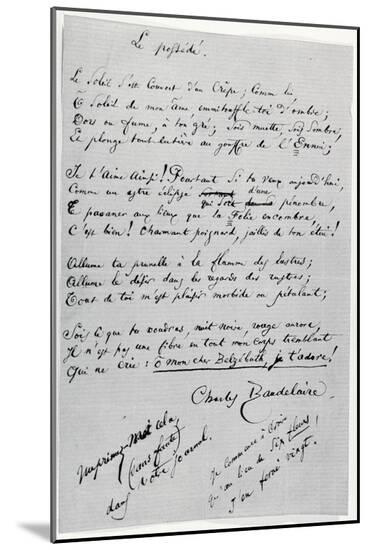 Le possédé.
Le Soleil s'est couvert d'un Crêpe; Comme lui
Ô Soleil de mon âme emmitouffle-toi d'ombre;
Dors ou fume, à ton gré; sois muette, sois sombre,
Et plonge tout entière au gouffre de l'Ennui;
Je t'aime ainsi! Pourtant si tu veux aujourd'hui,
Comme un astre éclipsé qui sort d'une pénombre,
Te pavaner aux lieux que la Folie encombre,
C'est bien! Charmant poignard, jaillis de ton étui!
Allume ta prunelle à la flamme des lustres;
Allume le désir dans les regards des rustres;
Tout de toi m'est plaisir morbide ou pétulant;
Sois ce que tu voudras, nuit noire, rouge aurore,
Il n'est pas une fibre en tout mon corps tremblant
Qui ne crie: Ô mon cher Belzébuth, je t'adore!
Charles Baudelaire.
Imprimez-Moi cela,
sans faute
dans votre journal.
Je commence à croire
qu'au lieu de Six fleurs,
j'en ferai vingt!